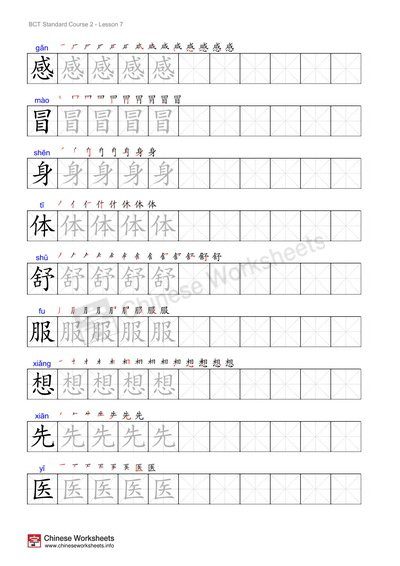 BCT Standard Course 2 - Lesson 7
gǎn
感感感感感
mào
冒冒冒冒冒
shēn
身身身身身
tǐ
体体体体体
shū
舒舒舒舒舒
fu
服服服服服
xiǎng
想想想想想
xiān
先先先先先
yī
医医医医医
Chinese Worksheets
Chinese Worksheets
www.chineseworksheets.info